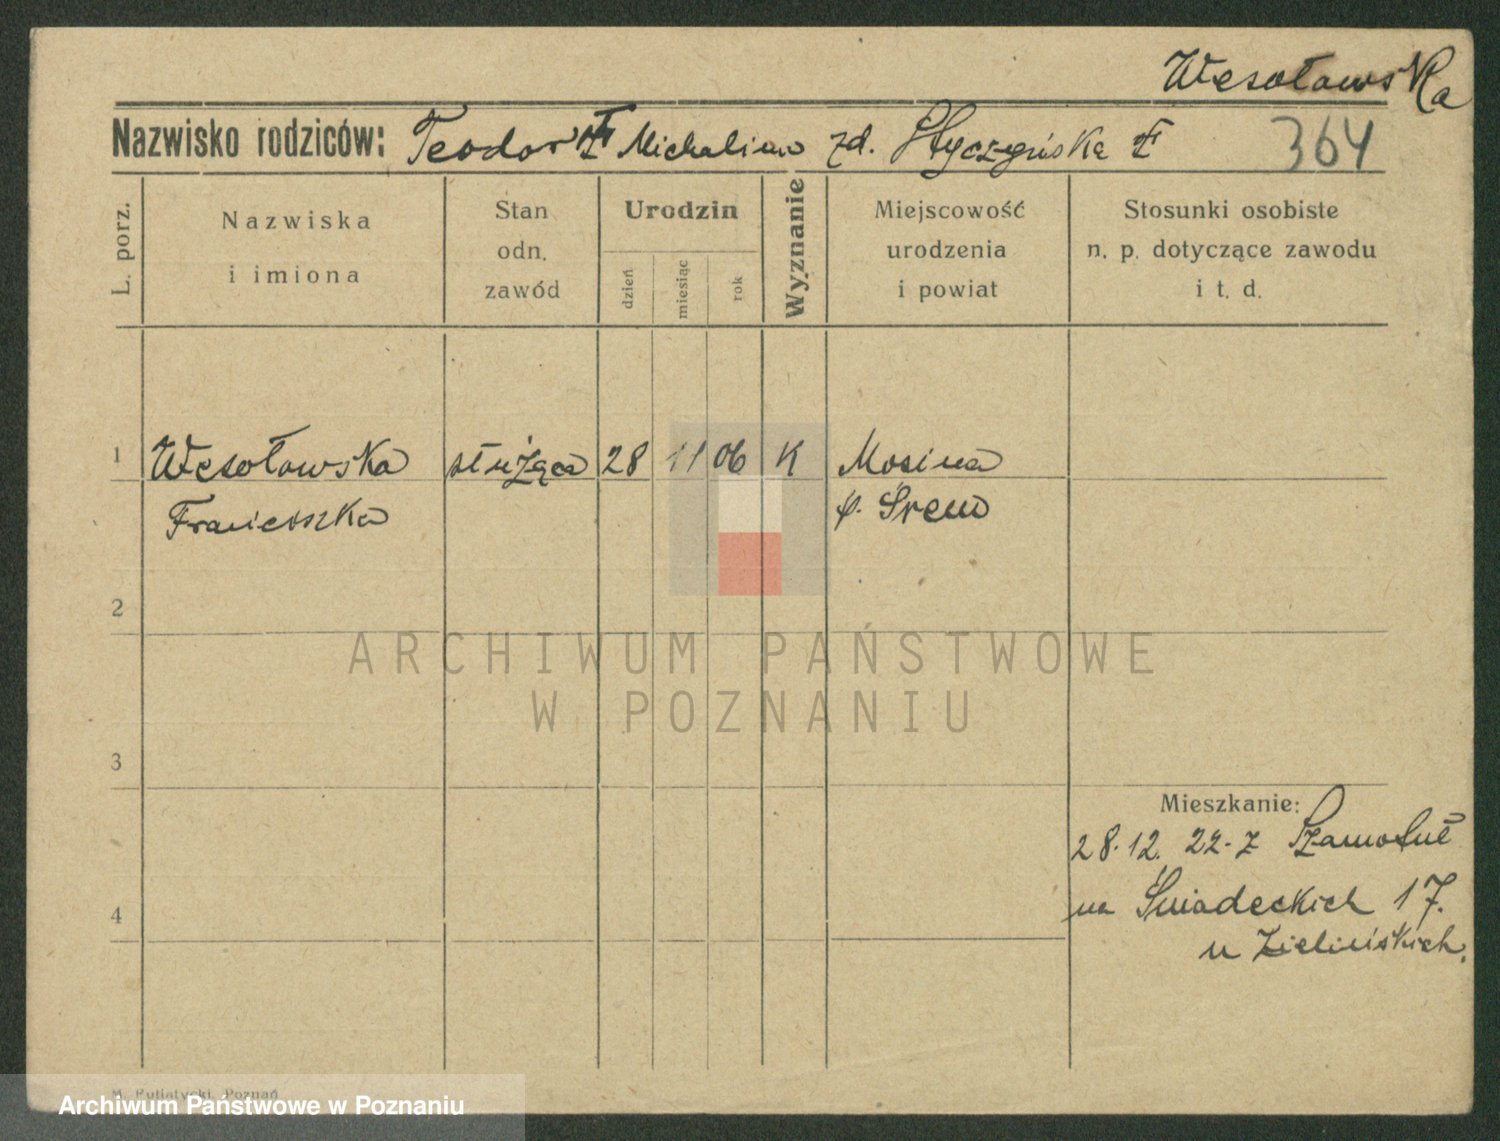 Wesołowska
Nazwisko rodziców: Teodor Michalina zd. Styczyńska 364
L. porz.
Nazwiska
i imiona
Stan
odn.
zawód
Urodzin
dzień
miesiąc
rok
Wyznanie
Miejscowość
urodzenia
i powiat
Stosunki osobiste
n. p. dotyczące zawodu
i t. d.
1 Wesołowska służąca 28 11 06 K Mosina
Franciszka p. Śrem
2
ARCHIWUM PAŃSTWOWE
W POZNANIU
3
Mieszkanie:
28.12. 22. z Szamotuł
4
na Śniadeckich 17.
u Zielińskich.
M. Putiatycki, Poznań
Archiwum Państwowe w Poznaniu